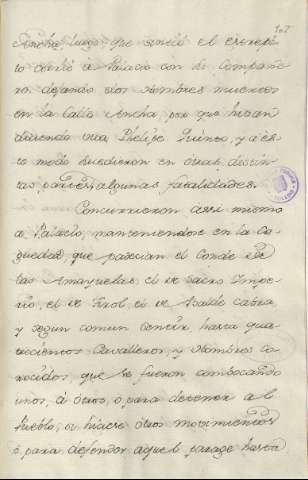 Ancha, luego que sintió el
to corrió à Palacio con su Compañe
ro, dejando dos Hombres muertos
en la Calle Ancha, por que hivan
diciendo viva Phelipe Quinto, y à es
te modo sucedieron en otras distin
tas partes algunas fatalidades.
Concurrieron assi mismo
a Palacio, manteniendose en la
que parecian el Conde de
las Amayuelas, el de Sacro Impe
rio, el de el de
y segun comun sentir hasta qua
trocientos Cavalleros, y Hombres co
nocidos, que se fueron combocando
unos, à otros, o para detener al
Pueblo, si hiciese otros movimientos
ò para defender aquel parage hasta